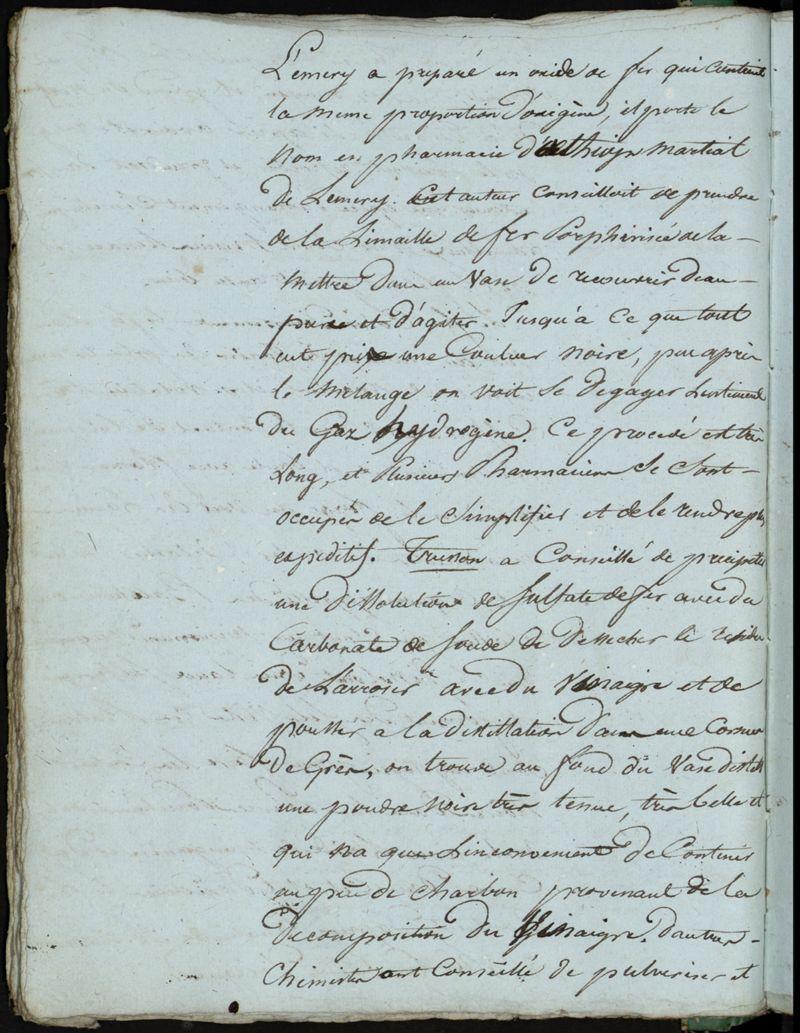 Lemery a preparé un oxide de fer qui contient
la meme proportion d'oxigène, il porte le
nom en pharmacie d'œthiops martial
de Lemery. Cet auteur conseilloit de prendre
de la Limaille de fer Porphirisée de la
mettre dans un Vase de recouvrir d'eau
pure et d'agiter. Jusqu'a ce que tout
eut prise une Couleur noire, peu après
le mélange on voit se degager
du Gaz hydrogène. Ce procedé est très
Long, et Plusieurs Pharmaciens se sont
occupés de le simplifier et de le rendre plus
expeditif. a Conseillé de precipiter
une dissolution de sulfate de fer avec du
Carbonate de soude de Dessecher le residu
de L'arroser avec du Vinaigre et de
pousser a la distillation dans une Cornue
de Grès, on trouve au fond du Vase
une poudre noire très tenue, très belle et
qui n'a que L'inconvenient de Contenir
un peu de charbon provenant de la
Decomposition du Vinaigre. D'autres
Chimistes ont Conseillé de pulveriser et